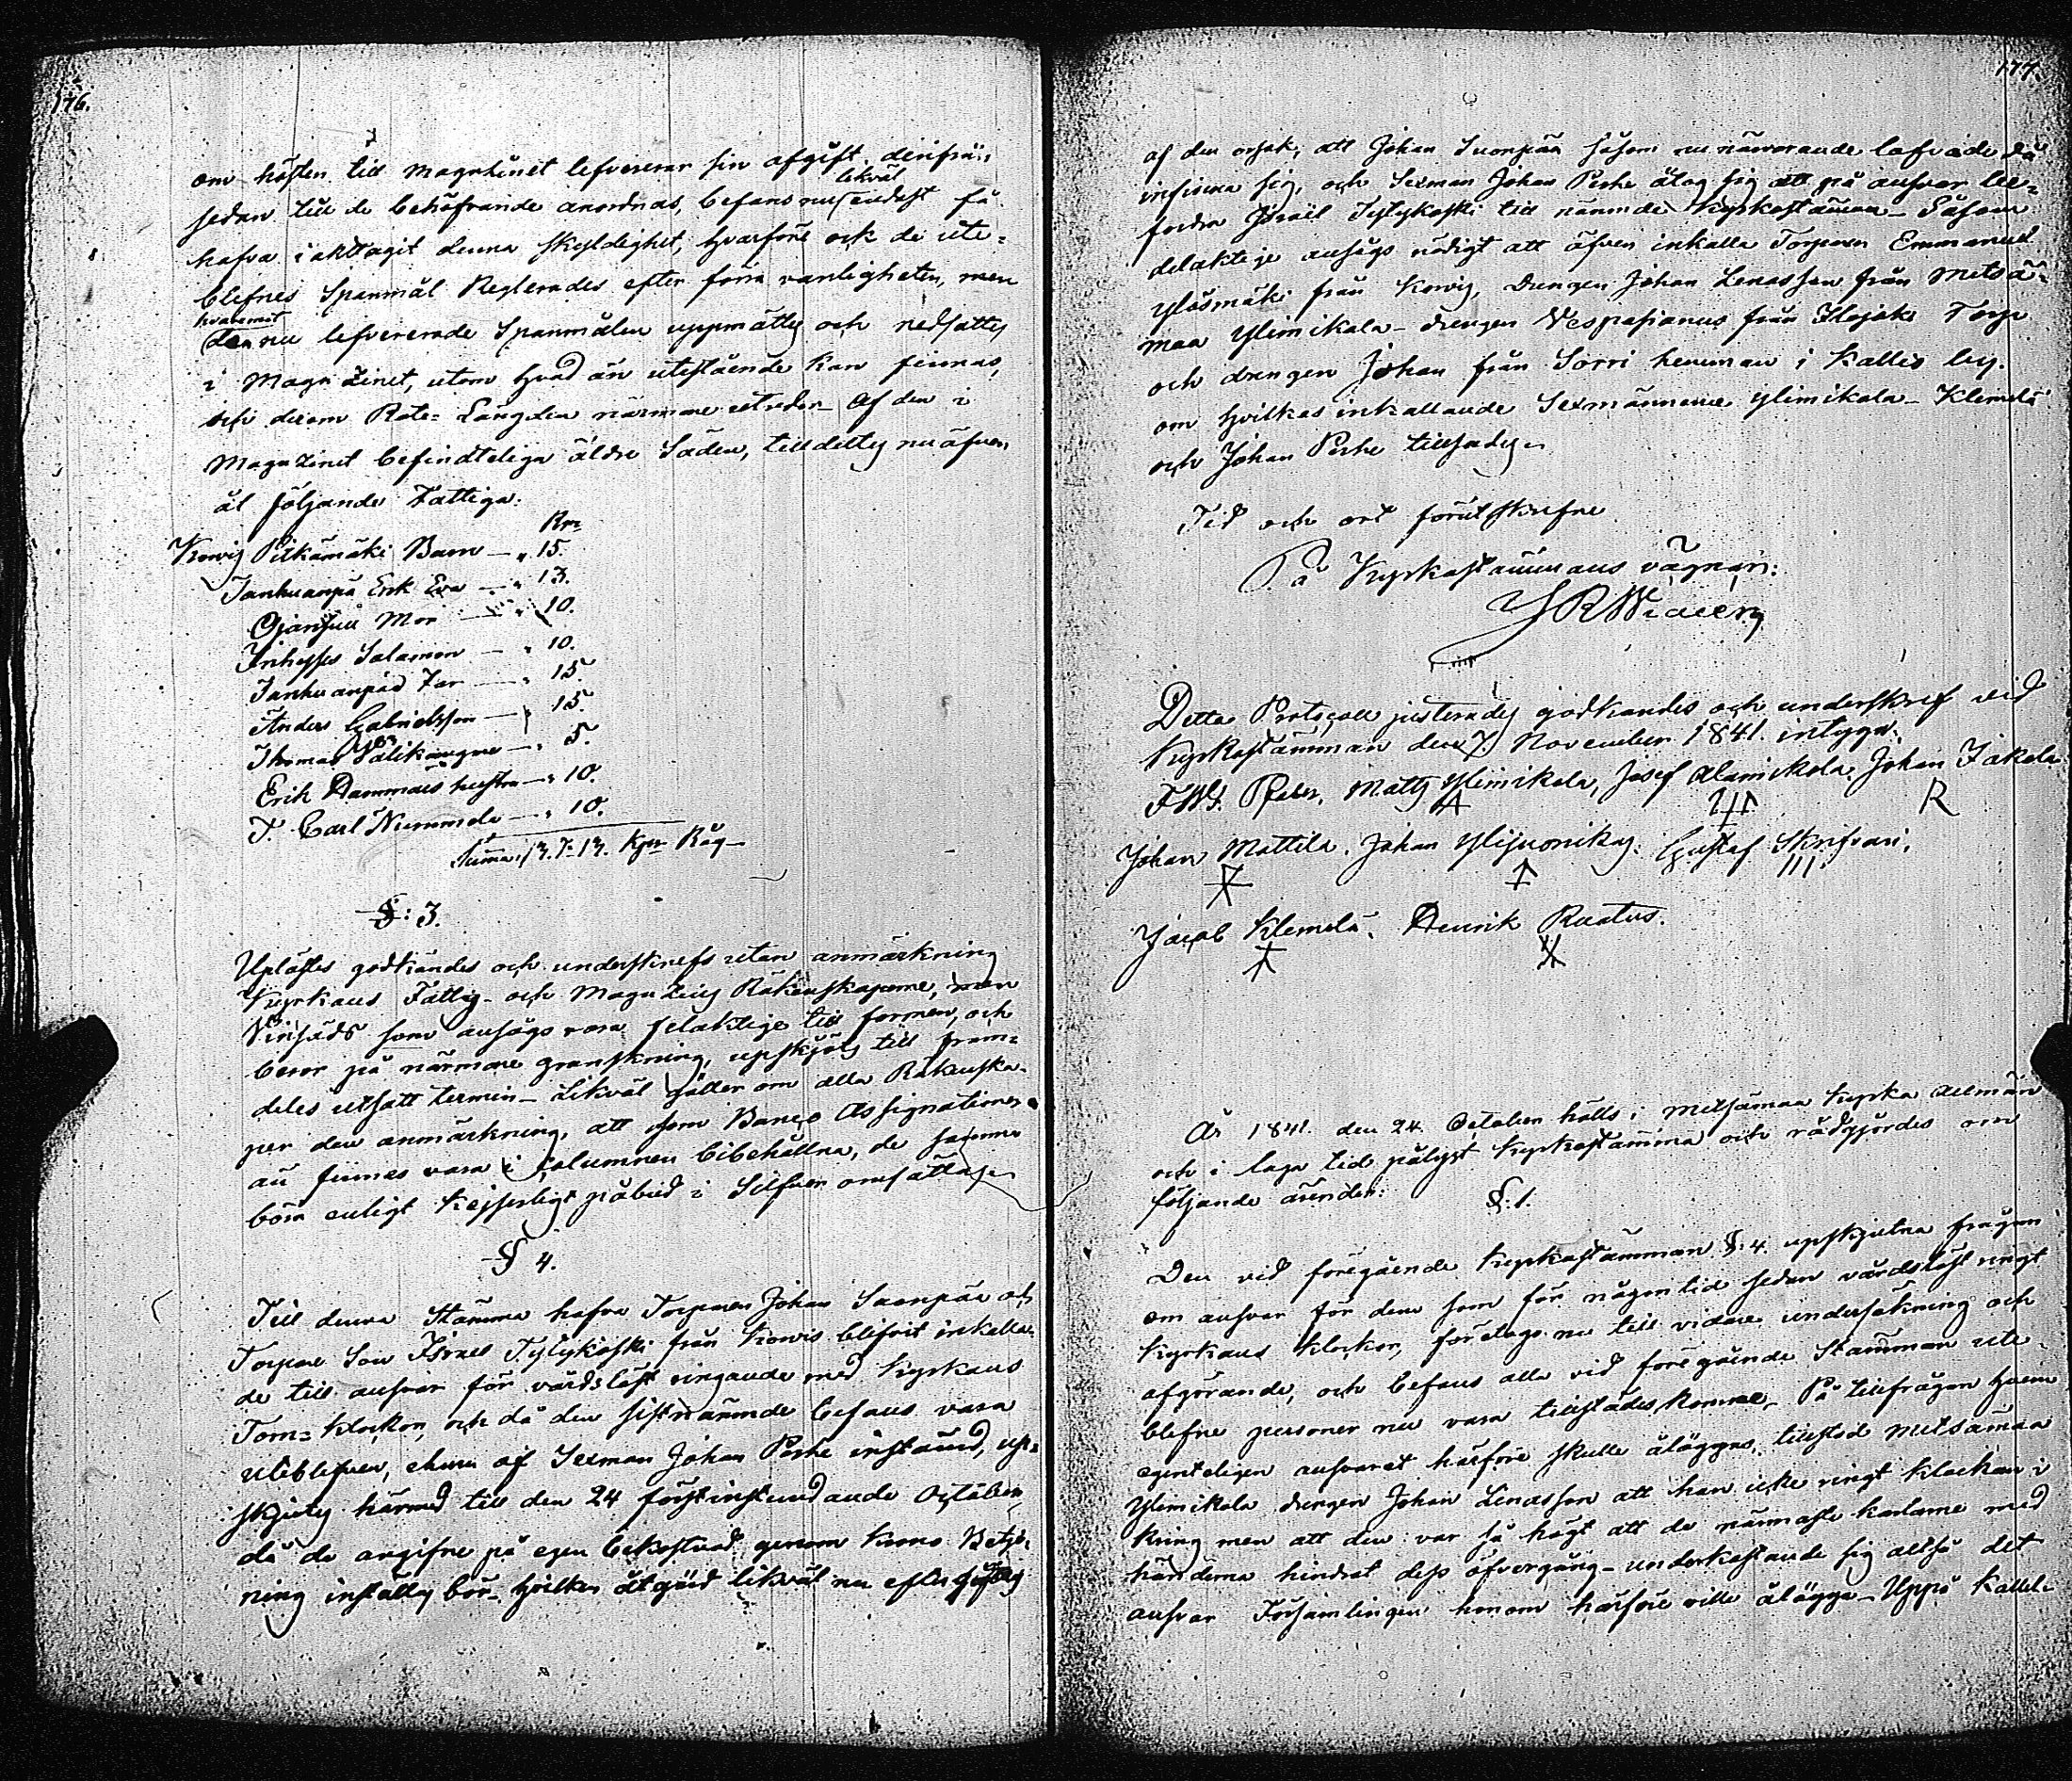 176.
om hösten till Magazinet lefvererar sin afgift, derifrån
sedan till de behöfvande anordnas, befans nu likväl endast få
hafva i akttagit denna skyldighet, hvarföre ock de ute-
blefnes Spanmål Reglerades efter förra vanligheten, men
hvaremot
den nu lefvererade Spanmålen uppmättes och nedsattes
i Magazinet, utom hvad än utestående kan finnas,
och derom Rote-Längden närmare utreder. Af den i
Magazinet befindteliga äldre Säden, tilldeltes nu äfven
åt följande Fattiga:
Kowis Pitkämäki Barn — „ 15.
Janhuanpä Erik Eva — „ 13.
Ojanjuu Mor — „ 10.
Salamon — „ 10.
Janhuanpää Far — „ 15.
Anders Gabrielsson — „ 15.
Thomas Wälikangas — „ 5.
Erik Dammais hustru — „ 10.
T. Carl Nummela — „ 10.
Summa 13. Kpr Råg —
§: 3.
Uplästes godkändes och underskrefs utan anmärkning
Kyrkans Fattig- och Magazins Räkenskaperne, men
Vinsäds som ansågs vara felaktige till formen, och
beror på närmare granskning, upskjöts till fram-
deles utsatt termin — Likväl gäller om alla Räkenska-
per den anmärkning, att som Banco Assignationer
än finnes vara i Columnen bibehållna, de samma
böra enligt Kejserligt påbud i Silfver omsättas.
§ 4.
Till denna Stämma hafva Torparen Johan Suonpää och
Torpare Son Israel Tylykoski från Kowis blifvit inkalla-
de till ansvar för vårdslöst ringande med Kyrkans
Torn-Klockor, och då den sistnämnde befans vara
uteblifven, ehuru af Sexman Johan Peshe instämd, up-
skjutes härmed till den 24 förstinstundande October
då de angifne på egen bekostnad genom Krono Betje-
ning inställes bör. hvilken åtgärd likväl nu efter
177.
af den orsak, att Johan Suonpää såsom nu närvarande lofvade då
infinna sig, och Sexman Johan Peshe åtog sig att på ansvar be-
fordra Israël Tylykoski till nämnde Kyrkostämma — Såsom
delaktige ansågs nödigt att äfven inkalla Torparen Emmanuel
Yläsmäki från Kowis, Drengen Johan Lenasson från Metsä-
maa Ylimikola — drengen Vespasianus från Ilojoki Torp
och drengen Johan från Sorri hemman i Kallio by.
om hvilkas inkallande Sexmännerne Ylimikola — Klemelä
och Johan Peshe tillsades.
Tid och ort förutskrefne
På Kyrkostämmans vägnar:
Detta Protocoll justerades godkändes och underskref vid
Kyrkostämman den 7 November 1841. intyga:
Matts Ylimikola, Josef Alamikola. Johan Jakola
R
Johan Mattila. Johan Ylijuonikas. Gustaf Skrifvari.
Jacob Klemelä. Henrik Ruatus.
År 1841. den 24. October hölls i Metsämaa Kyrka allmän
och i laga tid pålyst Kyrkostämma och rådgjordes om
följande ärender:
§: 1.
Den vid föregående Kyrkostämman §: 4. upskjutna frågan
om ansvar för dem som för någon tid sedan vårdslöst ringt
Kyrkans klockor, företogs nu till vidare undersökning och
afgörande, och befans alla vid föregående Stämman ute-
blefne personer nu vara tillstädeskomne. På tillfrågan hvem
egenteligen ansvaret härföre skulle åläggas, tillstod Metsämaa
Ylimikola drengen Johan Lenasson att han icke ringt klockan i
kring men att den var så högt att de närmaste karlarne med
händerna hindrat dess öfvergång — underkastande sig altså det
ansvar Församlingen honom härföre ville ålägga — Uppå